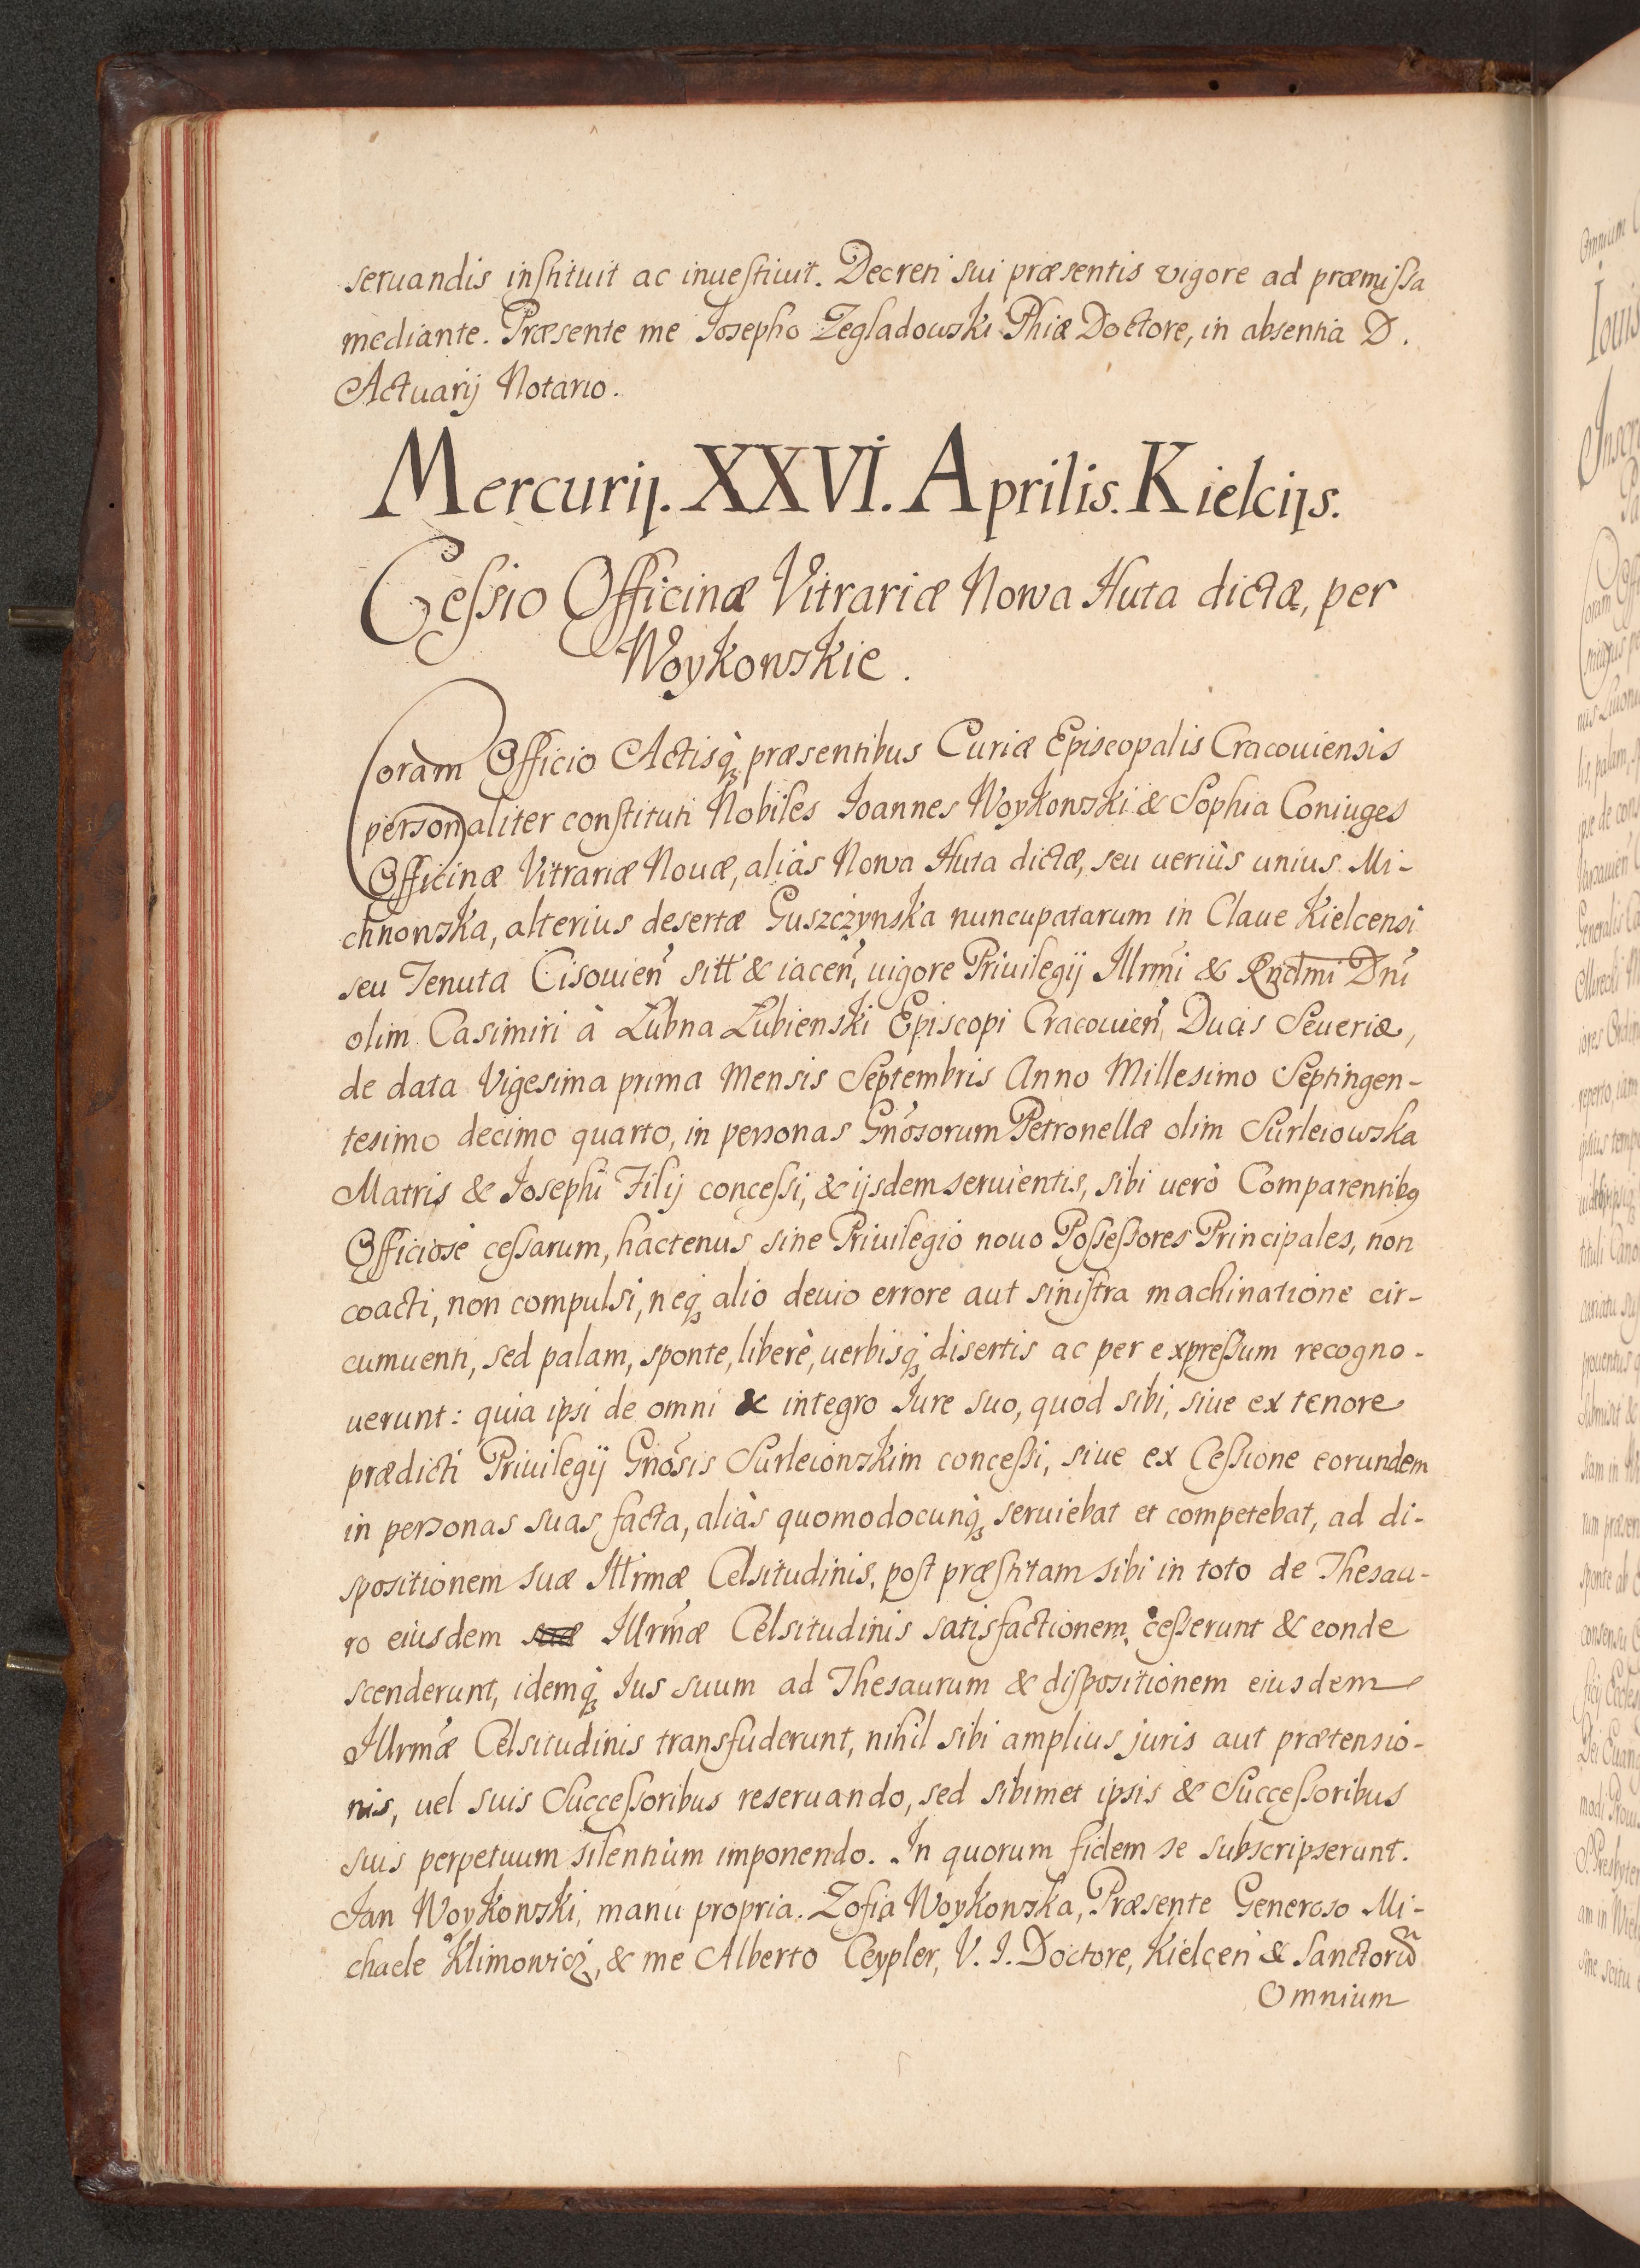 seruandis instituit ac inuestiuit. Decreti sui præsentis vigore ad præmissa
mediante. Præsente me Iosepho Zegladowski Phiæ Doctore, in absentia D.
Actuarij Notario.
Mercurij. XXVI. Aprilis. Kielcijs.
Cessio Officinæ Vitrariæ Nowa Huta dictæ, per
Woykowskie.
Coram Officio Actisq̀ præsentibus Curiæ Episcopalis Cracouiensis
personaliter constituti Nobiles Ioannes Woykowski & Sophia Coniuges
Officinæ Vitrariæ Nouæ, aliàs Nowa Huta dictæ, seu ueriùs unius Mi-
chnowska, alterius desertæ Guszczynska nuncupatarum in Claue Kielcensi
seu Tenuta Cisouien̄ sitt & iacen̄, uigore Priuilegij Illrmi & Rndmi Dni
olim Casimiri à Łubna Łubienski Episcopi Cracouien̄, Ducis Seueriæ,
de data Vigesima prima Mensis Septembris Anno Millesimo Septingen-
tesimo decimo quarto, in personas Gnosorum Petronellæ olim Surleiowska
Matris & Iosephi Filij concessi, & ijsdem seruientis, sibi uerò Comparentibq
Officiosè cessarum, hactenus sine Priuilegio nouo Possessores Principales, non
coacti, non compulsi, neq alio deuio errore aut sinistra machinatione cir-
cumuenti, sed palam, sponte, liberè, uerbisq disertis ac per expressum recogno-
uerunt: quia ipsi de omni & integro Iure suo, quod sibi, siue ex tenore
prædicti Priuilegij Gnosis Surleiowskim concessi, siue ex Cessione eorundem
in personas suas facta, aliàs quomodocunq seruiebat et competebat, ad di-
spositionem suæ Illrmæ Celsitudinis, post præstitam sibi in toto de Thesau-
ro eiusdem suæ Illrmæ Celsitudinis satisfactionem, cesserunt & conde
scenderunt, idemq̀ Ius suum ad Thesaurum & dispositionem eiusdem
Illrmæ Celsitudinis transfuderunt, nihil sibi amplius juris aut prætensio-
nis, uel suis Successoribus reseruando, sed sibimet ipsis & Successoribus
suis perpetuum silentium imponendo. In quorum fidem se subscripserunt.
Jan Woykowski, manu propria. Zofia Woykowska, Præsente Generoso Mi-
chaele Klimowicz, & me Alberto Ceypler, V. I. Doctore, Kielcen̄ & Sanctorū
Omnium